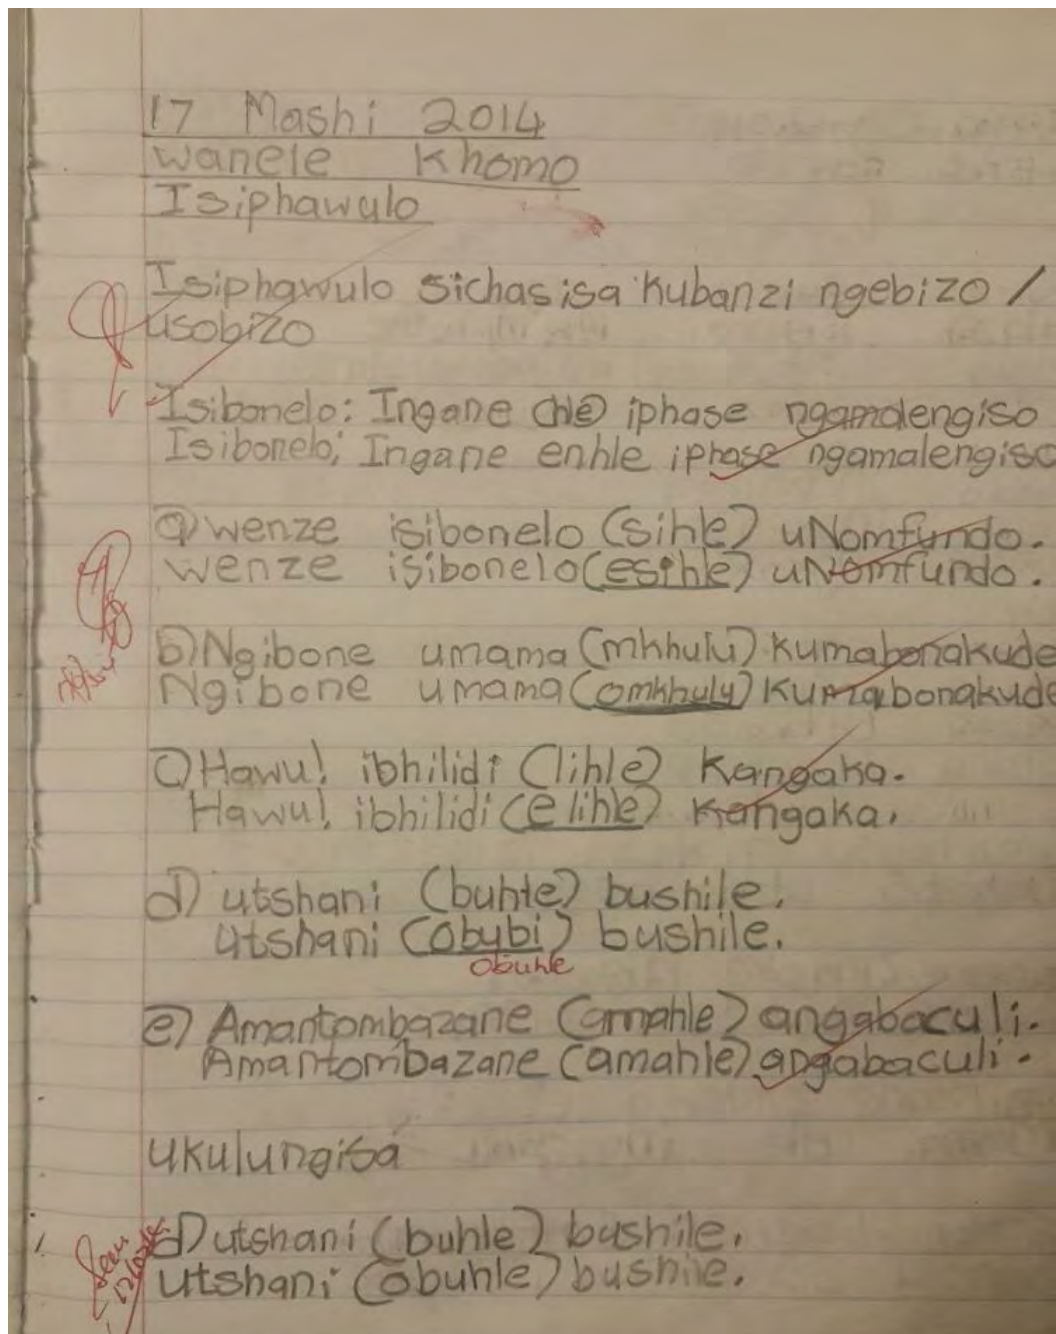 17 Mashi 2014
Wanele Khomo
Isiphawulo
Isiphawulo sichasisa kubanzi ngebizo /
usobizo
Isibonelo: Ingane (hle) iphase ngamalengiso
Isibonelo; Ingane enhle iphase ngamalengiso
a) wenze isibonelo (sihle) uNomfundo.
wenze isibonelo (esihle) uNomfundo.
b) Ngibone umama (mkhulu) kumabonakude
Ngibone umama (omkhulu) kumabonakude
c) Hawu! ibhilidi (lihle) kangaka.
Hawu! ibhilidi (elihle) kangaka.
d) utshani (buhle) bushile.
utshani (obubi) bushile.
obuhle
e) Amantombazane (amahle) angabaculi.
Amantombazane (amahle) angabaculi.
ukulungisa
d) utshani (buhle) bushile.
utshani (obuhle) bushile.